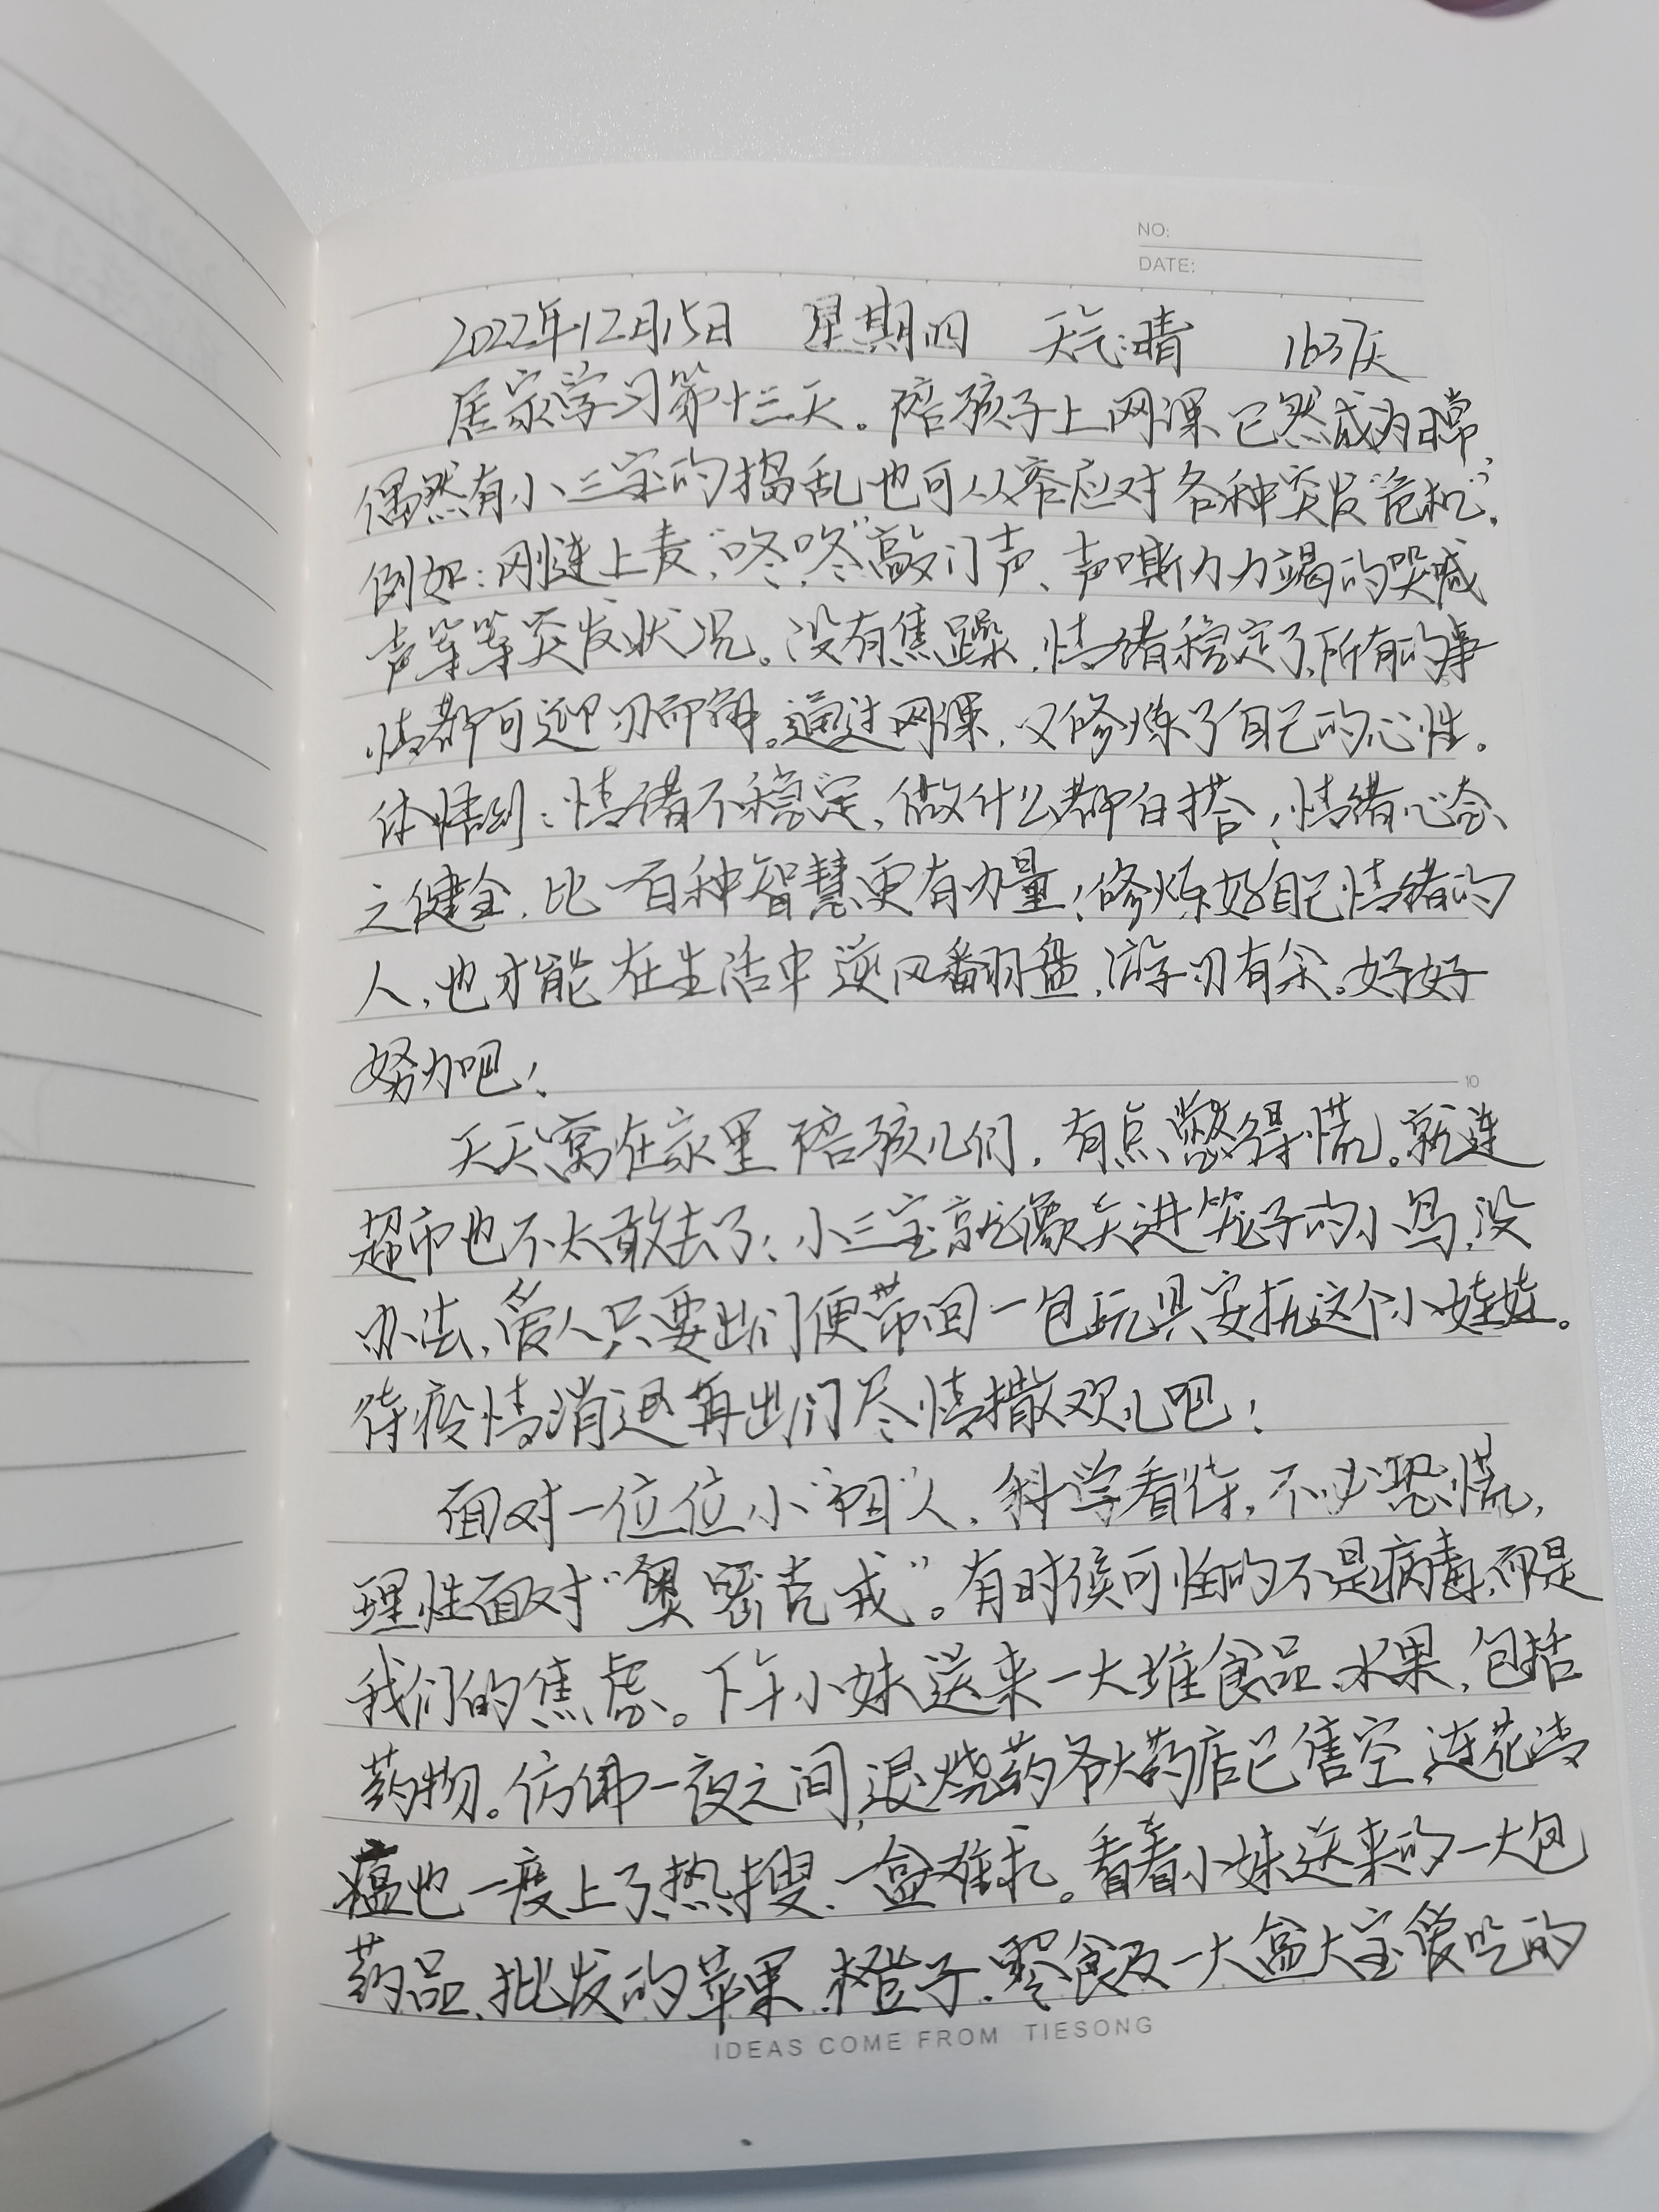 NO:
DATE:
2022年12月15日 星期四 天气:晴 1637天
居家学习第十三天。陪孩子上网课已然成为日常,
偶然有小三宝的捣乱也可从容应对各种突发“危机”。
例如:刚连上麦,“咚咚”敲门声、声嘶力力竭的哭喊
声等等突发状况。没有焦躁,情绪稳定了,所有的事
情都可迎刃而解。通过网课,又修炼了自己的心性。
体悟到:情绪不稳定,做什么都白搭;情绪心态
之健全,比一百种智慧更有力量;修炼好自己情绪的
人,也才能在生活中逆风翻盘,游刃有余。好好
努力吧!
天天窝在家里陪孩儿们,有点憋得慌。就连
超市也不太敢去了;小三宝就像关进笼子的小鸟,没
办法,爱人只要出门便带回一包玩具安抚这个小娃娃。
待疫情消退再出门尽情撒欢儿吧!
面对一位位小“阳”人,科学看待,不必恐慌,
理性面对“奥密克戎”。有时候可怕的不是病毒,而是
我们的焦虑。下午小妹送来一大堆食品、水果,包括
药物。仿佛一夜之间,退烧药各大药店已售空,连花清
瘟也一度上了热搜,一盒难求。看着小妹送来的一大包
药品、批发的苹果、橙子、零食及一大盒大宝爱吃的
IDEAS COME FROM TIESONG
10